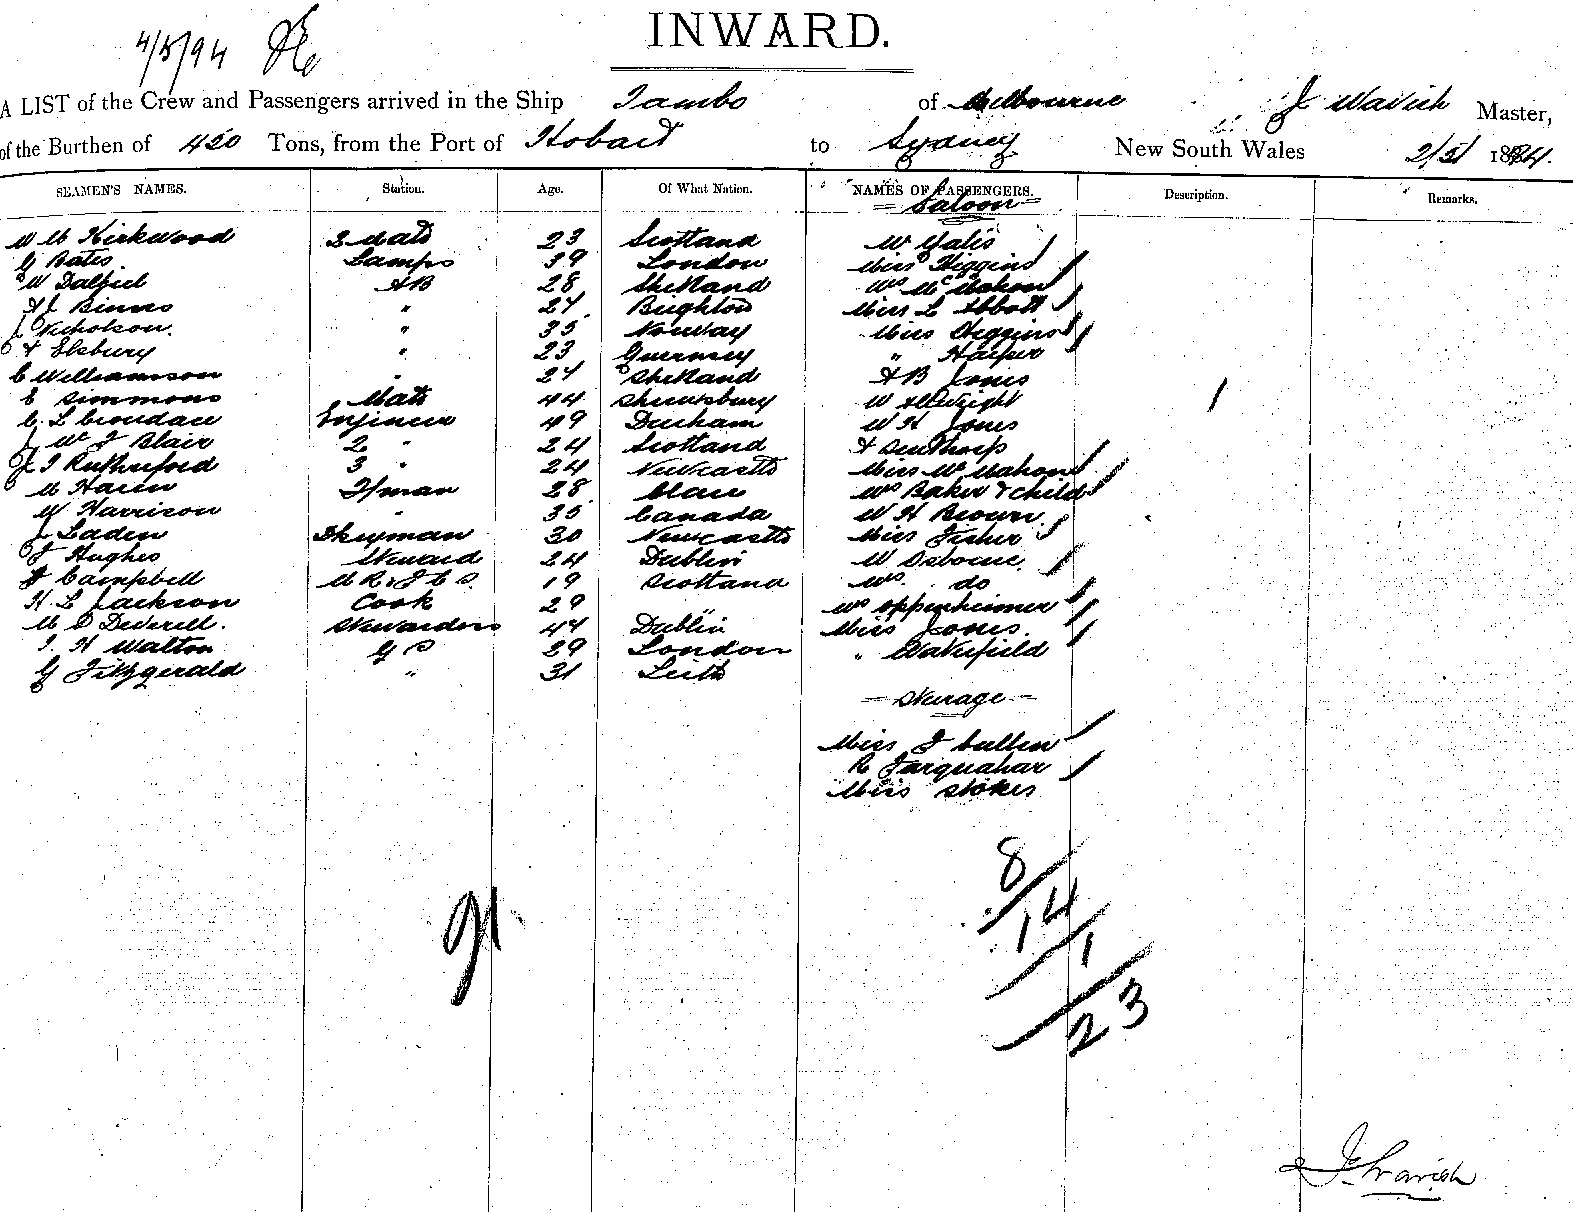 INWARD.
4/5/94
A LIST of the Crew and Passengers arrived in the Ship Tambo of Melbourne J Wavish Master,
of the Burthen of 420 Tons, from the Port of Hobart to Sydney New South Wales 2/5/ 1894.
SEAMEN'S NAMES. Station. Age. Of What Nation. NAMES OF PASSENGERS. Description. Remarks.
= Saloon =
W M Kirkwood 2 Mate 23 Scotland W Yates
G Bates Lamps 39 London Miss Higgins
W Dalziel AB 28 Shetland Mrs McMahon
H J Binns " 27 Brighton Miss L Abbott
J Nicholson. " 35 Norway Miss Higgins
F Elsbury " 23 Guernsey " Harper
C Williamson " 27 Shetland A B Jones
E Simmons Mate 44 Shrewsbury W Allwright
C. L Croudace Engineer 49 Durham W H Jones
J McJ Blair 2 " 24 Scotland
J T Rutherford 3 " 24 Newcastle Miss McMahon
M Haren F/man 28 Clare Mrs Baker & child
W Harrison " 35 Canada W H Brown
J Laden Dkeyman 30 Newcastle Miss Fisher
J Hughes Steward 24 Dublin W Osborne
J Campbell 19 Scotland Mrs do
H. L Jackson Cook 29 Mrs Oppenheimer
M D Deverell. Stewardess 47 Dublin Miss Jones.
T. H Walton G S 29 London " Wakefield
G Fitzgerald " 31 Leith
— Steerage —
Miss J Cullen
R Farquahar
Miss Stokes
8
14
1
23
91
J Wavish